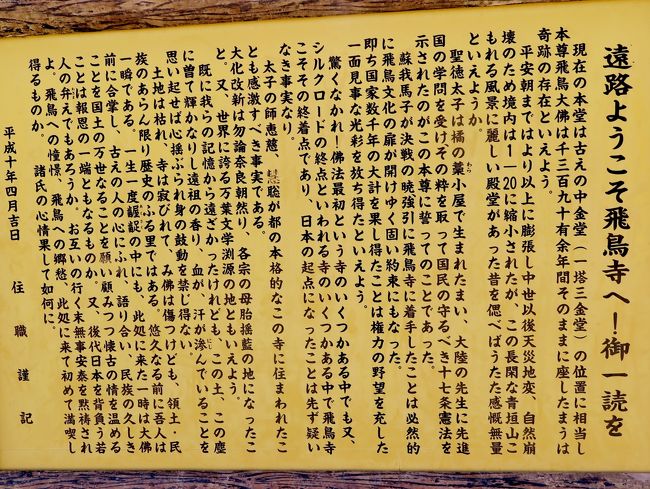 遠路ようこそ飛鳥寺へ!御一読を
現在の本堂は古えの中金堂(一塔三金堂)の位置に相当し
本尊飛鳥大佛は千三百九十有余年間そのままに座したまうは
奇跡の存在といえよう。
平安朝まではより以上に膨張し中世以後天災地変、自然崩
壊のため境内は1―20に縮小されたが、この長閑な青垣山こ
もれる風景に麗しい殿堂があった昔を偲べばうたた感慨無量
といえようか。
聖徳太子は橘の藁小屋で生まれたまい、大陸の先生に先進
国の学問を受けその粋を取って国民の守るべき十七条憲法を
示されたのがこの本尊に誓ってのことであった。
蘇我馬子が決戦の暁強引に飛鳥寺に着手したことは必然的
に飛鳥文化の扉が開けゆく固い約束にもなった。
即ち国家数千年の大計を果し得たことは権力の野望を充した
一面見事な光彩を放ち得たといえよう。
驚くなかれ!佛法最初という寺のいくつかある中でも又、
シルクロードの終点といわれる寺のいくつかある中で飛鳥寺
こそその終着点であり、日本の起点になったことは先ず疑い
なき事実なり。
太子の師恵慈、恵聡が都の本格的なこの寺に住まわれたこ
とも感激すべき事実である。
大化改新は勿論奈良朝然り、各宗の母胎揺藍の地になったこ
と。又、世界に誇る万葉文学渕源の地ともいえよう。
既に我らの記憶から遠ざかったけれども、この土、この塵
に曽て輝かなりし遠祖の香り、血が、汗が滲んでいることを
思い起せば心揺ぶられ身の鼓動を禁じ得ない。
土地は枯れ、寺は寂びれて、み佛は傷つけども、領土・民
族のあらん限り歴史のふる里ではある。悠久なる前に吾人は
一瞬である。一生一度齷齪の中にも、此処に来た一時は大佛
前に合掌し、古えの人の心にふれ、語り合い、民族の久しき
ことを国土の万世なることを願い顧みつつ懐古の情を温める
ことは報恩の一端ともなるものか。又、後代日本を背負う若
人の弁えでもあろうか。お互いの行く末無事安泰を黙祷され
よ。飛鳥への憧憬、飛鳥への郷愁、此処に来て初めて満喫し
得るものか。諸氏の心情果して如何に。
平成十年四月吉日
住職謹記